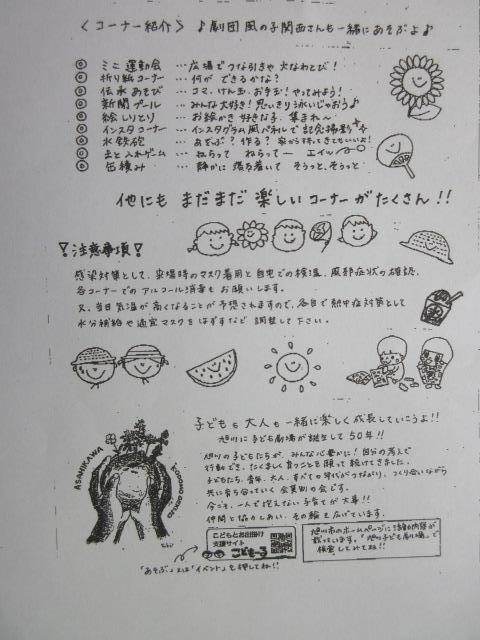 〈コーナー紹介〉 ♪劇団 風の子関西さんも一緒にあそぶよ♪
◎ ミニ 運動会 …広場でつな引きや 大なわとび!
◎ 折り紙コーナー …何が できるかな?
◎ 伝承あそび …コマ、けん玉、お手玉!やってみよう!
◎ 新聞プール …みんな大好き!思いきり泳いじゃおう♪
◎ 絵しりとり …お絵かき 好きな子、集まれ〜
◎ インスタコーナー …インスタグラム風パネルで記念撮影
◎ 水鉄砲 …あそぶ?作る?家から持ってきてもいいよ!
◎ 玉と入れゲーム …ねらって ねらってー エイッ
◎ 缶積み …静かに 落ち着いて そうっと、そうっと
他にも まだまだ 楽しい コーナーが たくさん!!
注意事項
感染対策として、来場時のマスク着用と自宅での検温、風邪症状の確認、
各コーナーでのアルコール消毒もお願いします。
又、当日気温が高くなることが予想されますので、各自で熱中症対策として
水分補給や適宜マスクをはずすなど 調整して下さい。
子どもも大人も一緒に楽しく成長していこうよ!!
旭川に子ども劇場が誕生して50年!!
旭川の子どもたちが、みんな心豊かに!自分の考えで
行動でき、たくましく育つことを願って続けてきました。
子どもたち、青年、大人、すべての年代がつながり、つくり合いながら
共に育ち合っていく会員制の会です。
今こそ、一人で抱えない子育てが大事!!
仲間と協力しあい、その輪を広げています。
ASAHIKAWA
KODOMO GEKIJO
こどもとお出掛け
支援サイト
こどもーる
「あそぶ」又は「イベント」を押してね!!
旭川市のホームページに活動内容が
載っています。「旭川子ども劇場」で
検索してみてね!!